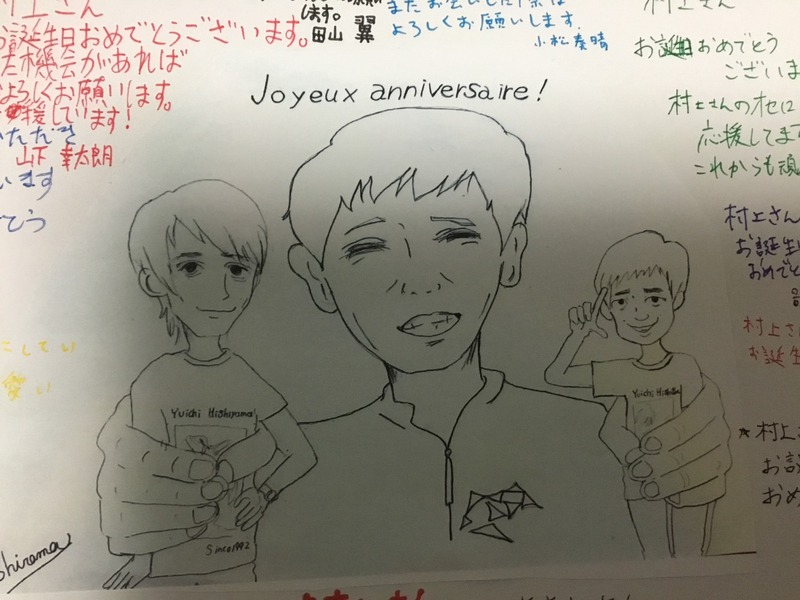 村上さん
お誕生日おめでとうございます。
た機会があれば
よろしくお願いします。
応援しています!
いただき
山下 幸太朗
います
とう
にしてい
愛い
します。
田山 翼
またお会いした際は
よろしくお願いします。
小松奏晴
Joyeux anniversaire!
村上さん
お誕生日おめでとう
ございま
村上さんのオセロ
応援してます
これからも頑
村上さん
お誕生日
おめでと
村上さ
お誕生
★村上さ
お誕
おめ
Yuichi Hishiyama
Since1992
Yuichi
shirama